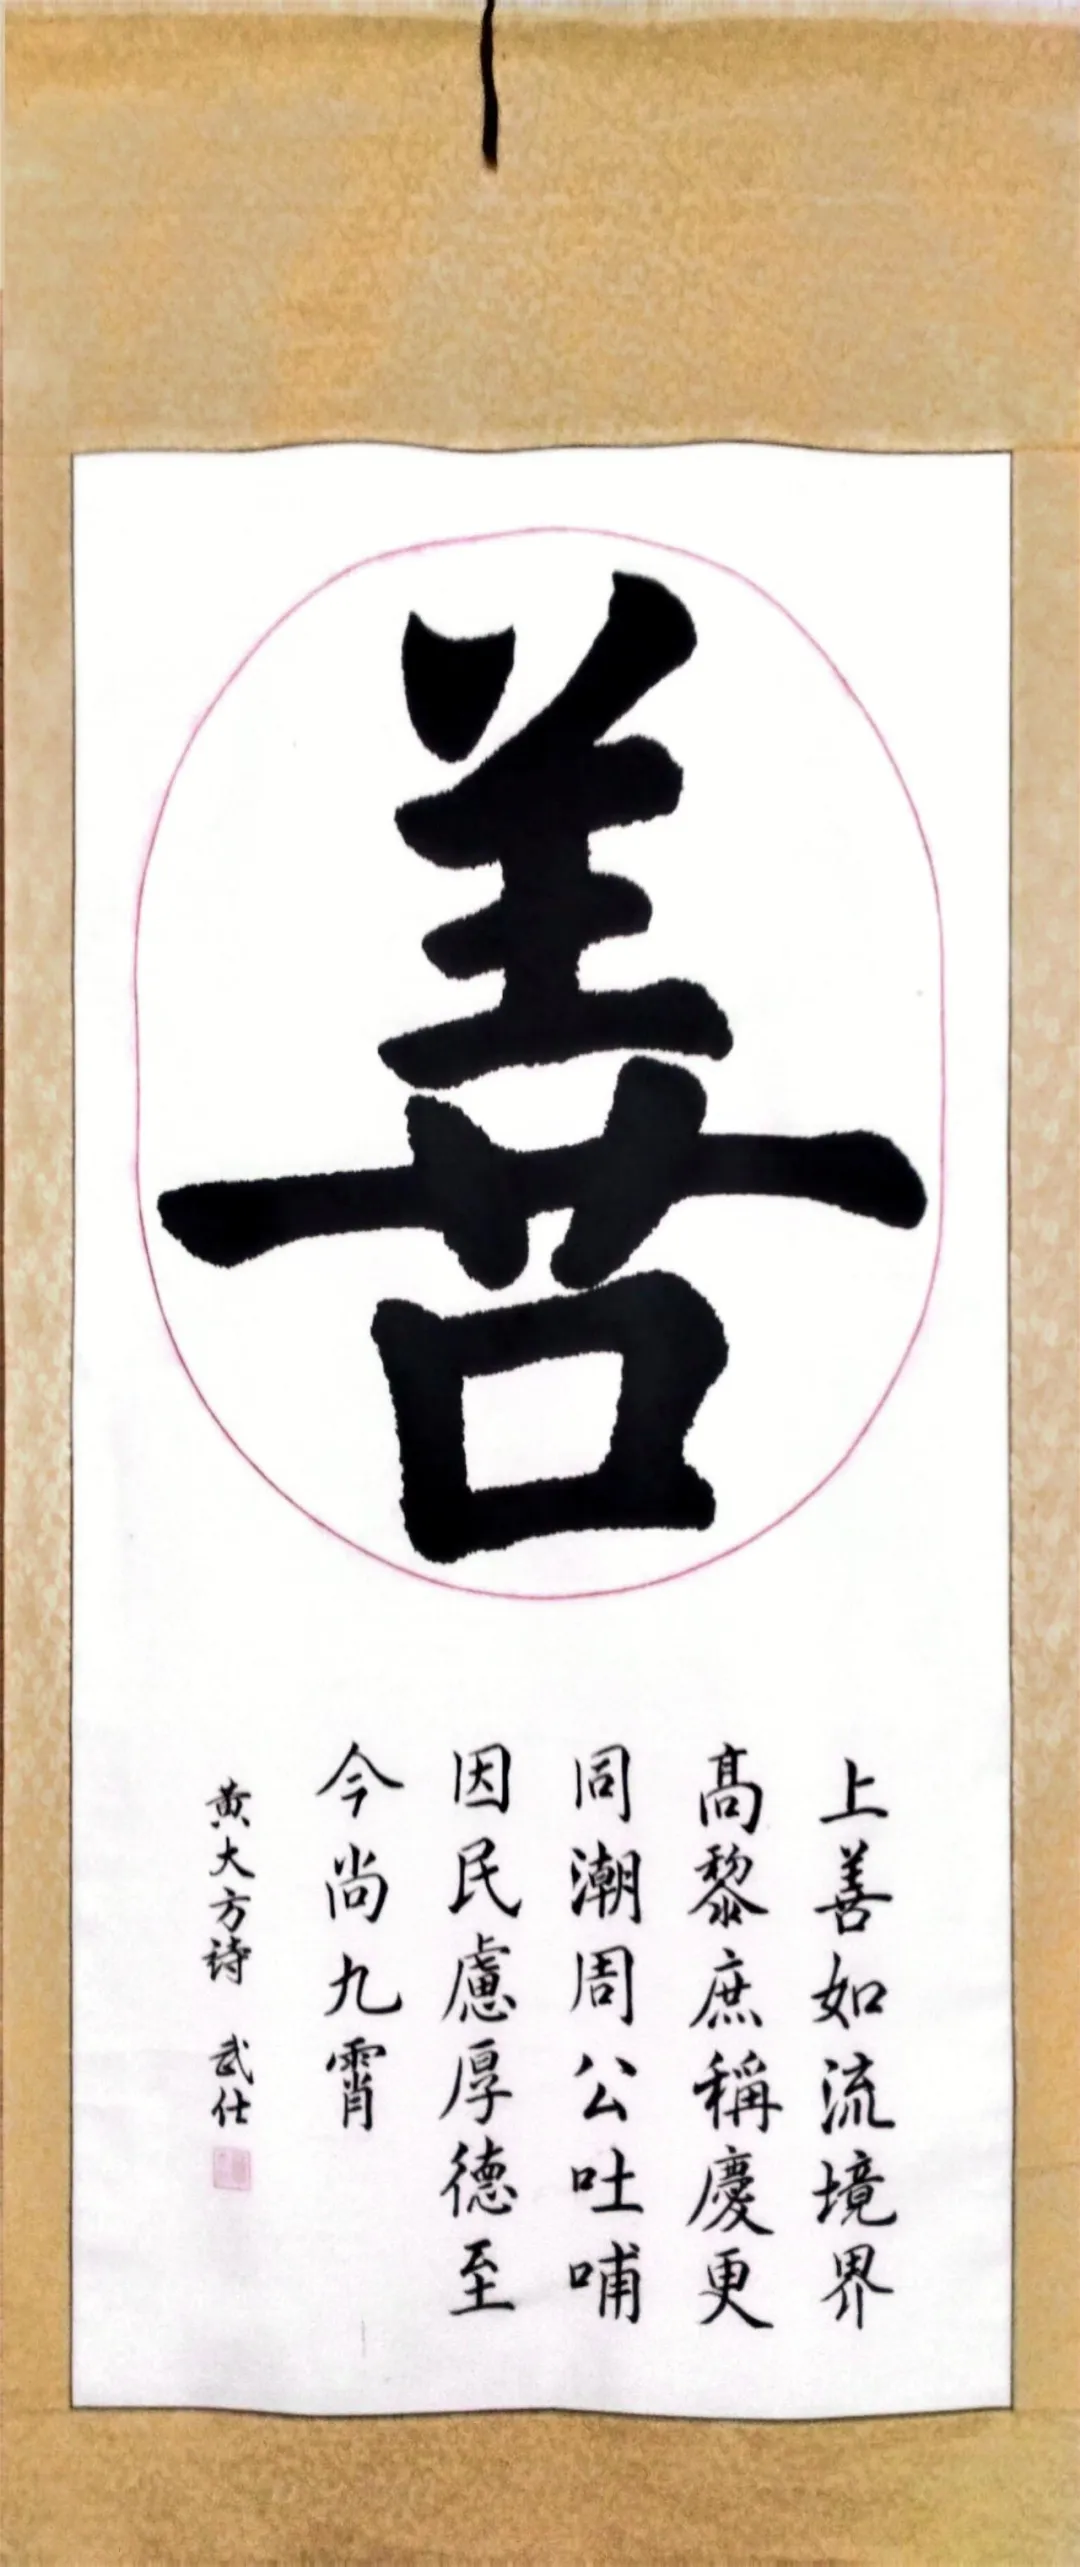 善
上善如流境界
高黎庶稱慶更
同潮周公吐哺
因民慮厚德至
今尚九霄
黄大方诗 武仕